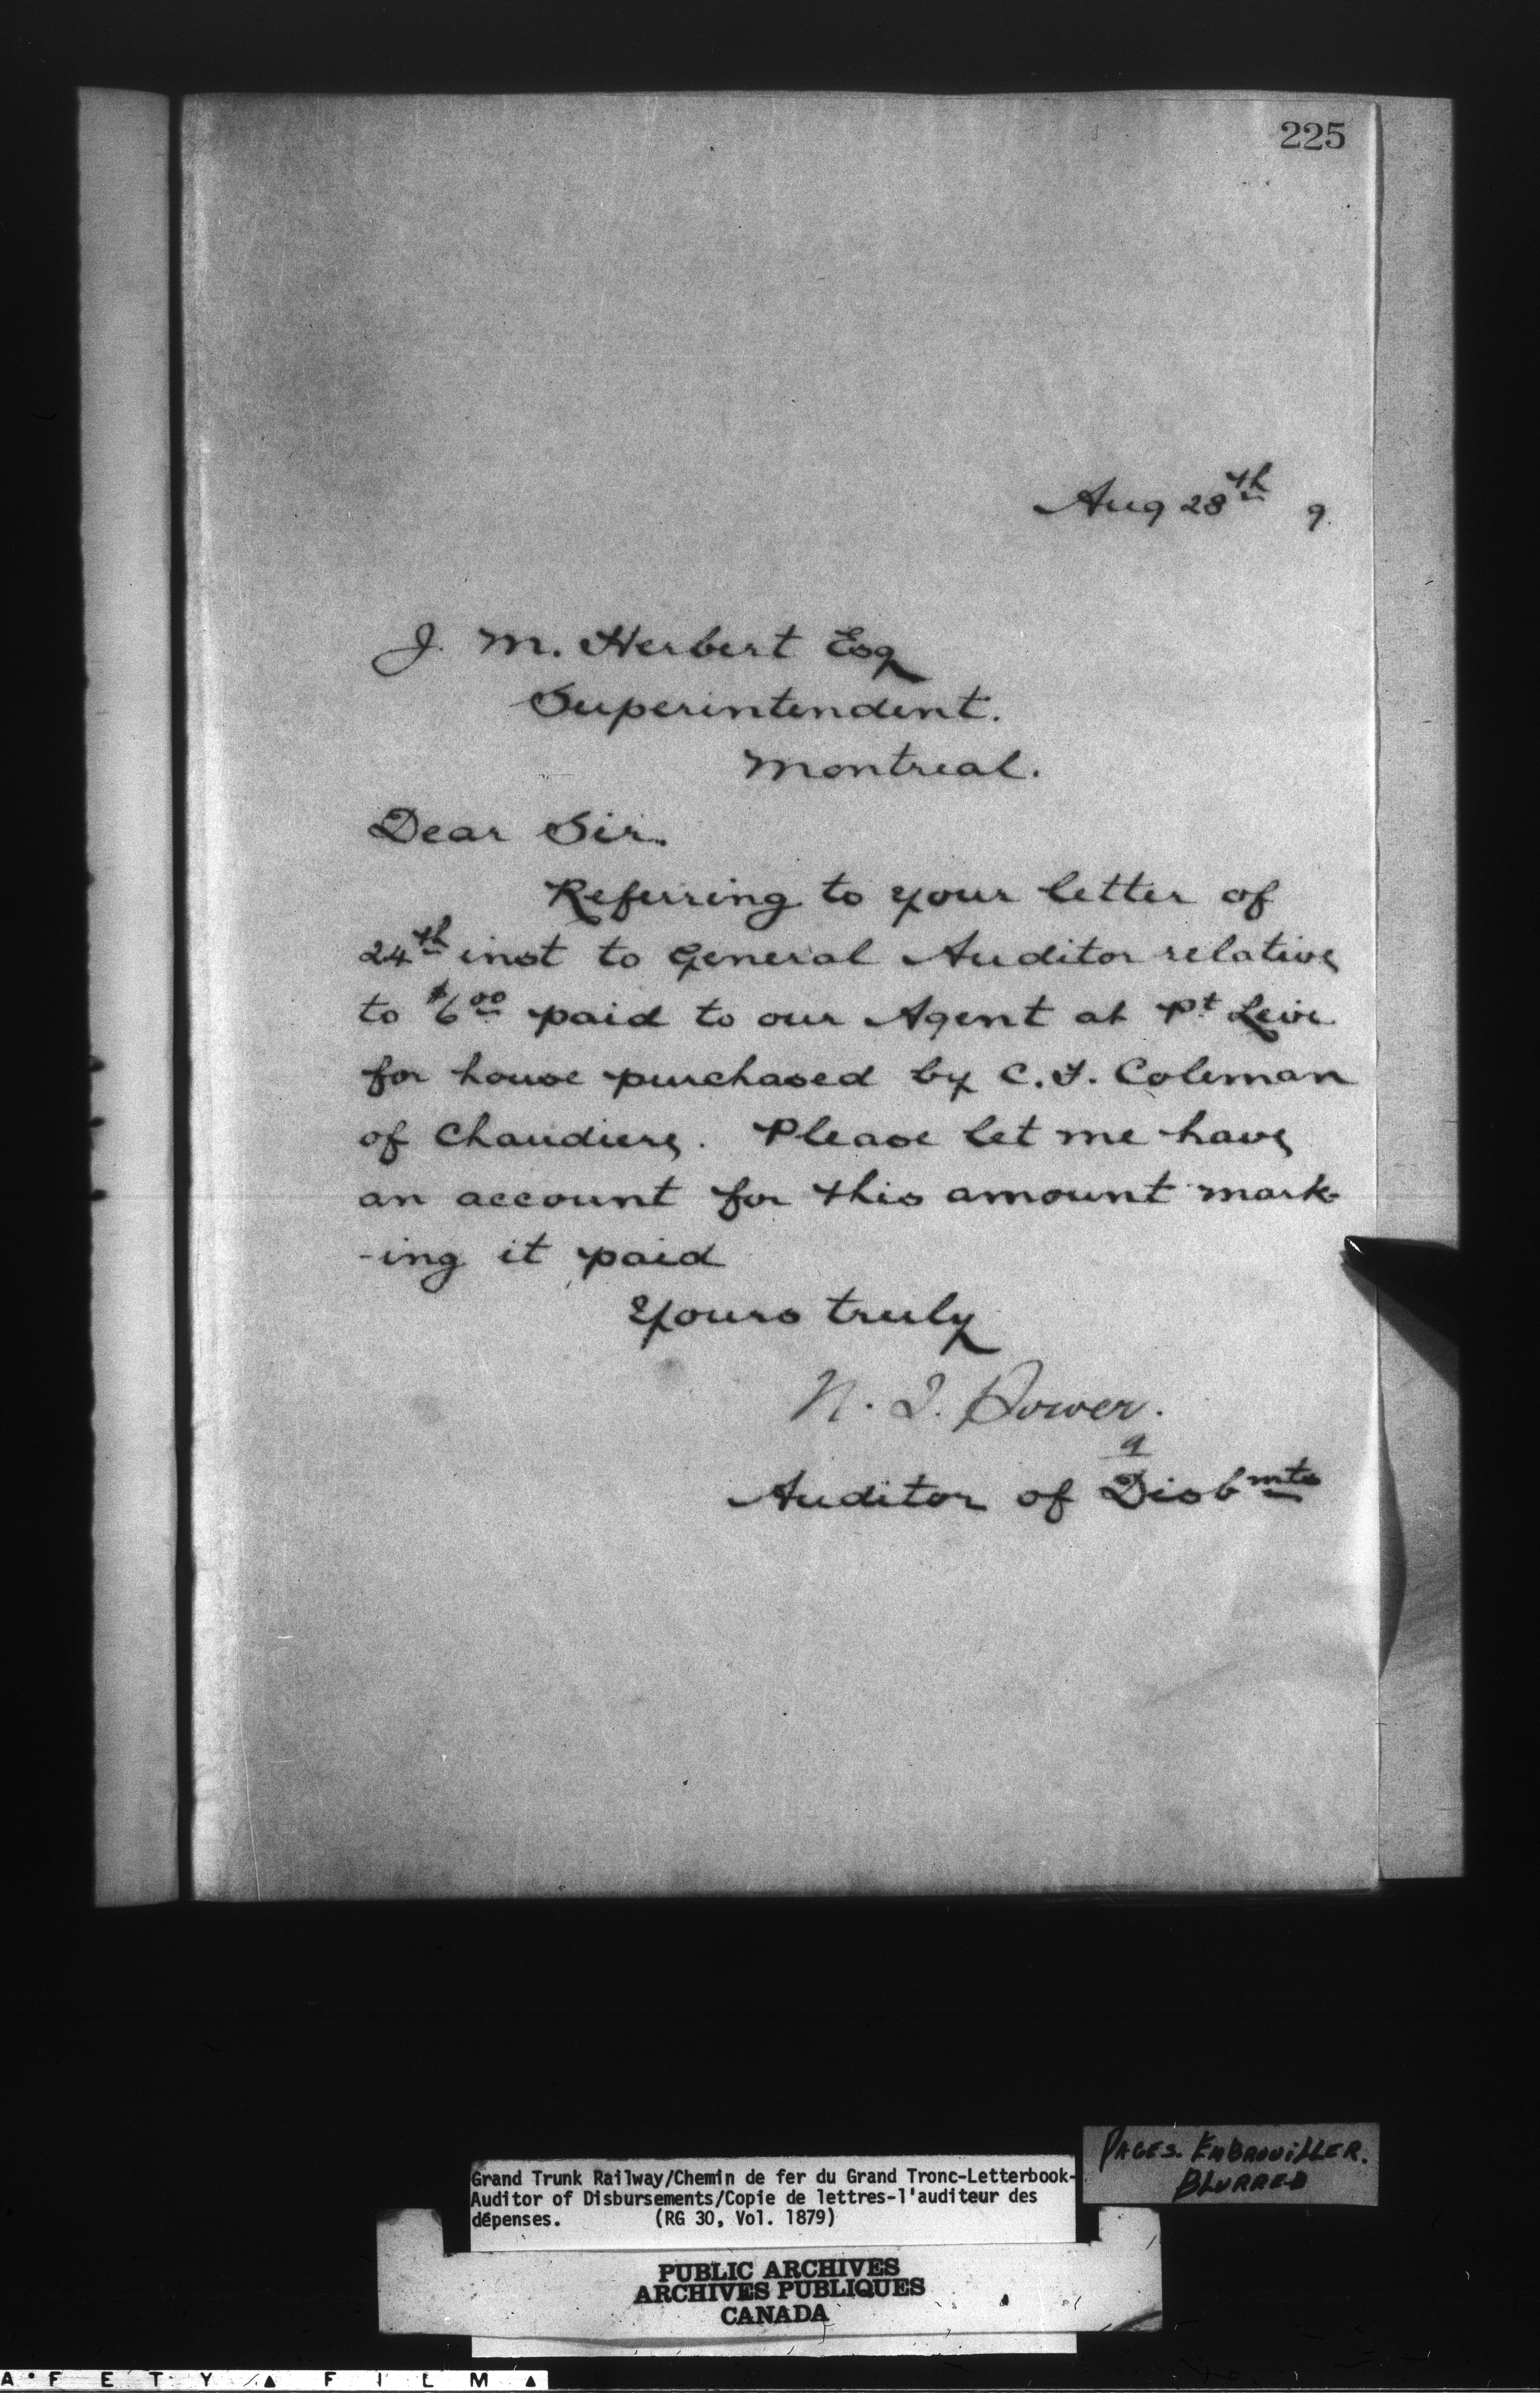 225
Aug 28th 9
J. M. Herbert Esq
Superintendent.
Montreal.
Dear Sir.
Referring to your letter of
24th inst to General Auditor relative
to $6 00 paid to our Agent at Pt Levi
for house purchased by C. F. Coleman
of Chaudiere. Please let me have
an account for this amount mark-
-ing it paid
Yours truly
N. J. Power.
Auditor of Disbmts
PAGES. EMBROUILLER.
BLURRED
Grand Trunk Railway/Chemin de fer du Grand Tronc-Letterbook-
Auditor of Disbursements/Copie de lettres-l'auditeur des
dépenses. (RG 30, Vol. 1879)
PUBLIC ARCHIVES
ARCHIVES PUBLIQUES
CANADA
A F E T Y F I L M